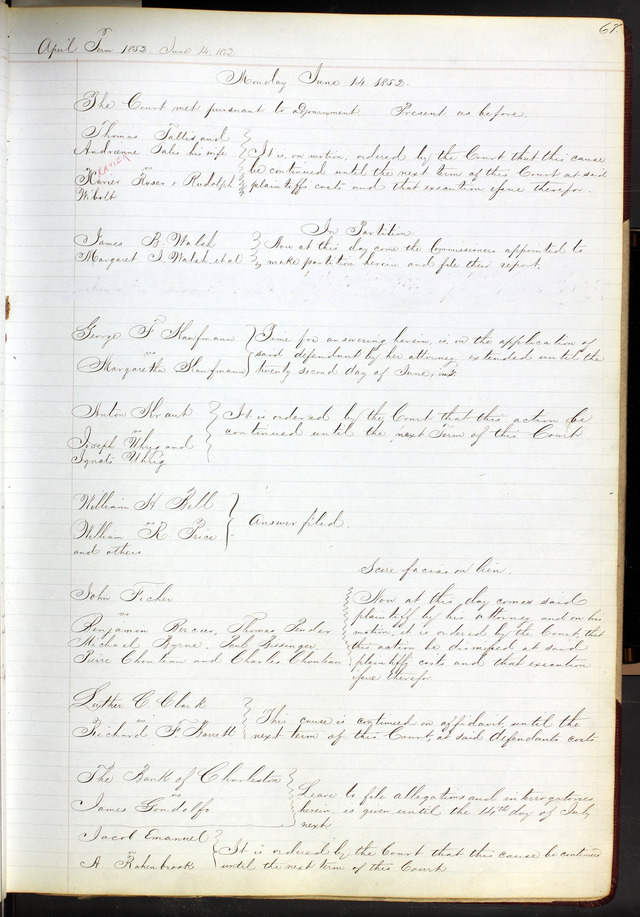 67.
April Term 1852. June 14. 1852
Monday June 14 1852.
The Court met pursuant to adjournment. Present as before.
Thomas Tallis and
Andrienne Talis his wife
vs
XAVIER
Xavier Rosar & Rudolph
Wibolt
It is, on motion, ordered by the Court that this cause
be continued until the next term of this Court at said
plaintiffs costs and that execution issue therefor.
In Partition
James B. Walsh
Margaret I. Walsh. et al
Now at this day come the Commissioners appointed to
make partition herein and file their report.
George F Kaufmann
vs
Margaretha Kaufmann
Time for answering herein, is on the application of
said defendant by her attorney, extended until the
twenty second day of June, inst.
Anton Kraut
vs
Joseph Uhrig and
Ignatz Uhrig
It is ordered by the Court that this action be
continued until the next Term of this Court
William H. Bell
vs
William R. Price
and others
Answer filed.
Scire facias on lien.
John Techer
vs
Benjamin Thomas Ponder
Michael Byrne. Paul Bissinger
Pierre Chouteau and Charles Chouteau
Now at this day comes said
plaintiff by his attorney and on his
motion, it is ordered by the Court, that
this action be dismissed at said
plaintiffs costs and that execution
issue therefor
Luther C. Clark
vs
Richard F Barrett
This cause is continued on affidavit, until the
next term of this Court, at said defendants costs
The Bank of Charleston
vs
James Gondolfo
Leave to file allegations and interrogatories
herein, is given until the 14th day of July
next.
Jacob Emanuel
vs
A Rahenbrook
It is ordered by the Court that this cause be continued
until the next term of this Court